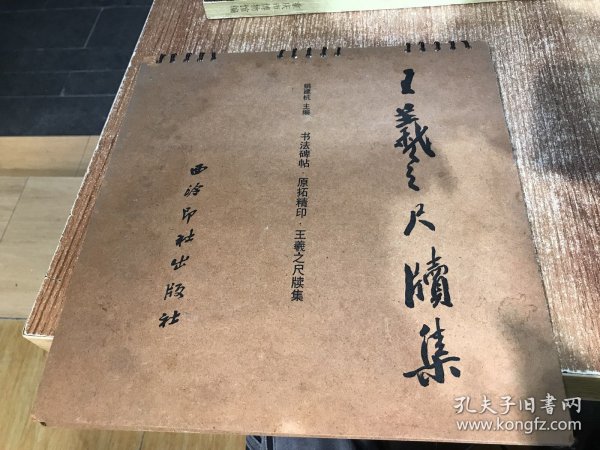 王羲之尺牍集
主编
书法碑帖·原拓精印·王羲之尺牍集
西泠印社出版社
孔夫子旧书网
www.kongfz.com